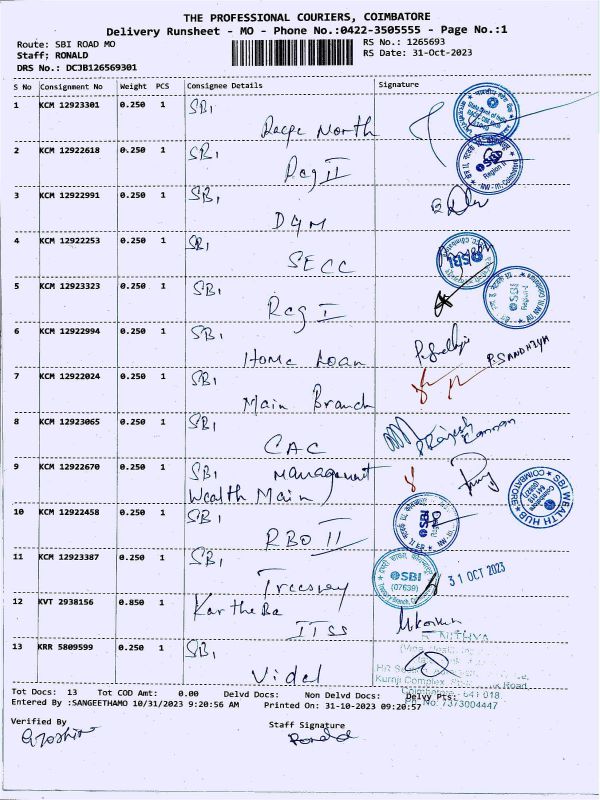 THE PROFESSIONAL COURIERS, COIMBATORE
Delivery Runsheet - MO - Phone No.:0422-3505555 - Page No.:1
Route: SBI ROAD MO RS No.: 1265693
Staff: RONALD RS Date: 31-Oct-2023
DRS No.: DCJB126569301
S No Consignment No Weight PCS Consignee Details Signature
1 KCM 12923301 0.250 1 SBI,
North
2 KCM 12922618 0.250 1 SBI,
Reg II
3 KCM 12922991 0.250 1 SBI,
DGM
4 KCM 12922253 0.250 1 SBI,
SECC
5 KCM 12923323 0.250 1 SBI,
Reg I
6 KCM 12922994 0.250 1 SBI,
Home Loan
P. SANDHIYA
7 KCM 12922024 0.250 1 SBI,
Main Branch
8 KCM 12923065 0.250 1 SBI,
CAC
Rajesh Kannan
9 KCM 12922670 0.250 1 SBI Management
Wealth Main
SBI WEALTH HUB
COIMBATORE
10 KCM 12922458 0.250 1 SBI,
RBO II
11 KCM 12923387 0.250 1 SBI,
SBI
(07639)
31 OCT 2023
12 KVT 2938156 0.850 1
ITSS
NITHYA
13 KRR 5809599 0.250 1 SBI,
Vidal
641 018.
No: 7373004447
Tot Docs: 13 Tot COD Amt: 0.00 Delvd Docs: Non Delvd Docs: Delvy Pts:
Entered By :SANGEETHAMO 10/31/2023 9:20:56 AM Printed On: 31-10-2023 09:20:57
Verified By Staff Signature
Ronald